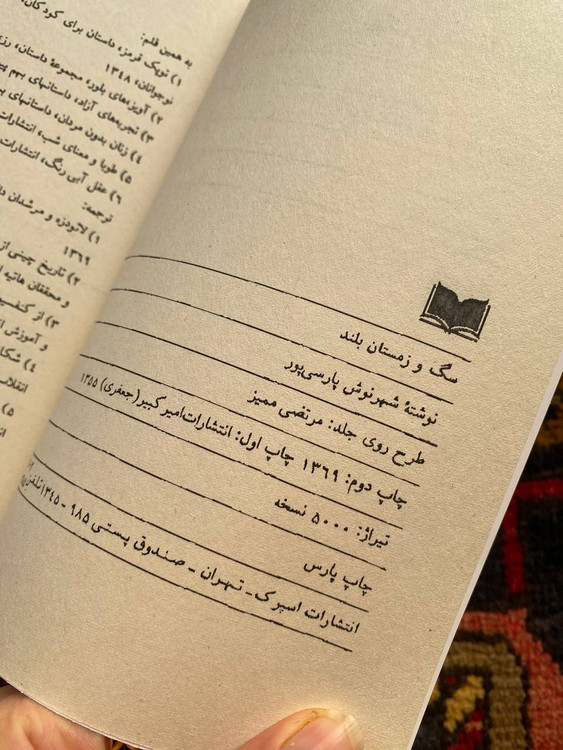 سگ و زمستان بلند
نوشتهٔ شهرنوش پارسی‌پور
طرح روی جلد: مرتضی ممیز
چاپ دوم: ۱۳۶۹ چاپ اول: انتشارات امیر کبیر (جعفری) ۱۳۵۵
تیراژ: ۵۰۰۰ نسخه
چاپ پارس
انتشارات اسپرک ـ تهران ـ صندوق پستی ۹۸۵ - ۱۳۴۵ تلفن
به همین قلم:
۱) توپک قرمز، داستان برای کودکان،
نوجوانان، ۱۳۴۸
۲) آویزه‌های بلور، مجموعهٔ داستان،
۳) تجربه‌های آزاد، داستانهای بهم
۴) زنان بدون مردان، داستانهای
۵) طوبا و معنای شب، انتشارات
۶) عقل آبی رنگ، انتشارات
ترجمه:
۱) لائودزه و مرشدان
۱۳۶۹
۲) تاریخ چینی از
و محققان
۳) از
و آموزش
۴)
۵)